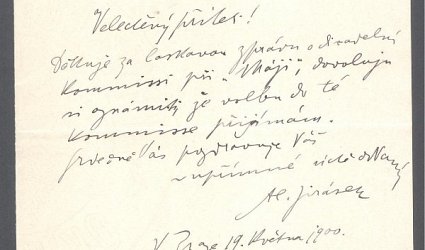 Velectěný příteli!
Děkuje za laskavou zprávu o divadelní
kommissi při „Máji", dovoluju
si oznámiti že volbu do té
kommisse přijímám.
Srdečně Vás pozdravuje Váš
upřímně
Al. Jirásek
V Praze 19. května 1900.